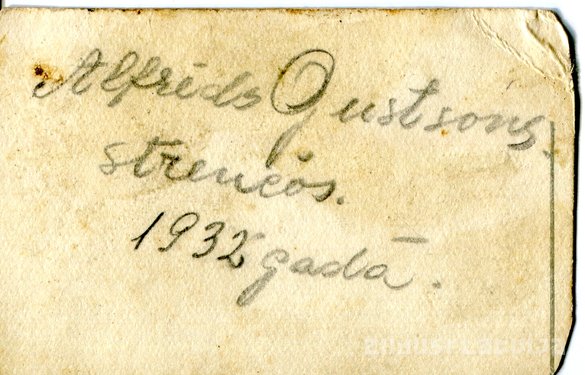 Alfrēds Gustsons.
strenčos.
1932 gadā.